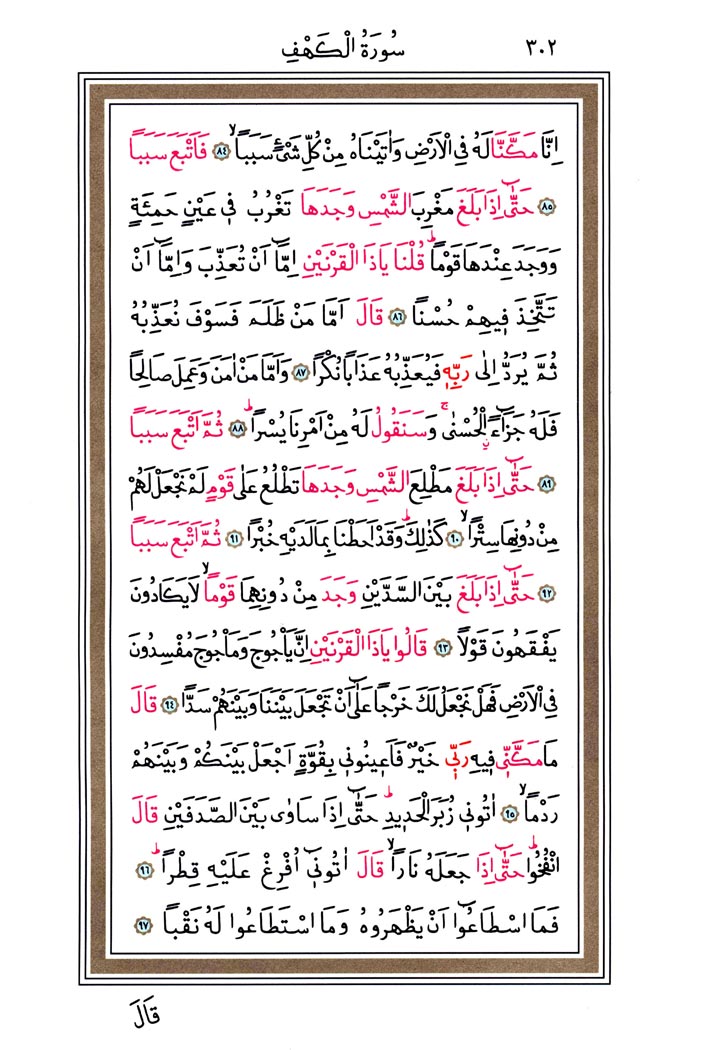 ٣٠٢ سُورَةُ الْكَهْفِ
اِنَّا مَكَّنَّا لَهُ فِي الْاَرْضِ وَاٰتَيْنَاهُ مِنْ كُلِّ شَيْءٍ سَبَباًۙ ﴿٨٤﴾ فَاَتْبَعَ سَبَباً
﴿٨٥﴾ حَتّٰٓى اِذَا بَلَغَ مَغْرِبَ الشَّمْسِ وَجَدَهَا تَغْرُبُ فِي عَيْنٍ حَمِئَةٍ
وَوَجَدَ عِنْدَهَا قَوْماًۜ قُلْنَا يَاذَا الْقَرْنَيْنِ اِمَّٓا اَنْ تُعَذِّبَ وَاِمَّٓا اَنْ
تَتَّخِذَ فِيهِمْ حُسْناً ﴿٨٦﴾ قَالَ اَمَّا مَنْ ظَلَمَ فَسَوْفَ نُعَذِّبُهُ
ثُمَّ يُرَدُّ اِلٰى رَبِّهٖ فَيُعَذِّبُهُ عَذَاباً نُكْراً ﴿٨٧﴾ وَاَمَّا مَنْ اٰمَنَ وَعَمِلَ صَالِحاً
فَلَهُ جَزَٓاءًۨ الْحُسْنٰىۚ وَسَنَقُولُ لَهُ مِنْ اَمْرِنَا يُسْراًۜ ﴿٨٨﴾ ثُمَّ اَتْبَعَ سَبَباً
﴿٨٩﴾ حَتّٰٓى اِذَا بَلَغَ مَطْلِعَ الشَّمْسِ وَجَدَهَا تَطْلُعُ عَلٰى قَوْمٍ لَمْ نَجْعَلْ لَهُمْ
مِنْ دُونِهَا سِتْراًۙ ﴿٩٠﴾ كَذٰلِكَۜ وَقَدْ اَحَطْنَا بِمَا لَدَيْهِ خُبْراً ﴿٩١﴾ ثُمَّ اَتْبَعَ سَبَباً
﴿٩٢﴾ حَتّٰٓى اِذَا بَلَغَ بَيْنَ السَّدَّيْنِ وَجَدَ مِنْ دُونِهِمَا قَوْماًۙ لَا يَكَادُونَ
يَفْقَهُونَ قَوْلاً ﴿٩٣﴾ قَالُوا يَاذَا الْقَرْنَيْنِ اِنَّ يَأْجُوجَ وَمَأْجُوجَ مُفْسِدُونَ
فِي الْاَرْضِ فَهَلْ نَجْعَلُ لَكَ خَرْجاً عَلٰٓى اَنْ تَجْعَلَ بَيْنَنَا وَبَيْنَهُمْ سَداًّ ﴿٩٤﴾ قَالَ
مَا مَكَّنّٖي فِيهِ رَبّٖي خَيْرٌ فَاَعٖينُونٖي بِقُوَّةٍ اَجْعَلْ بَيْنَكُمْ وَبَيْنَهُمْ
رَدْماًۙ ﴿٩٥﴾ اٰتُونٖي زُبَرَ الْحَدٖيدِۜ حَتّٰٓى اِذَا سَاوٰى بَيْنَ الصَّدَفَيْنِ قَالَ
انْفُخُواۜ حَتّٰٓى اِذَا جَعَلَهُ نَاراًۙ قَالَ اٰتُونٖٓي اُفْرِغْ عَلَيْهِ قِطْراًۜ ﴿٩٦﴾
فَمَا اسْطَاعُٓوا اَنْ يَظْهَرُوهُ وَمَا اسْتَطَاعُوا لَهُ نَقْباً ﴿٩٧﴾
قَالَ